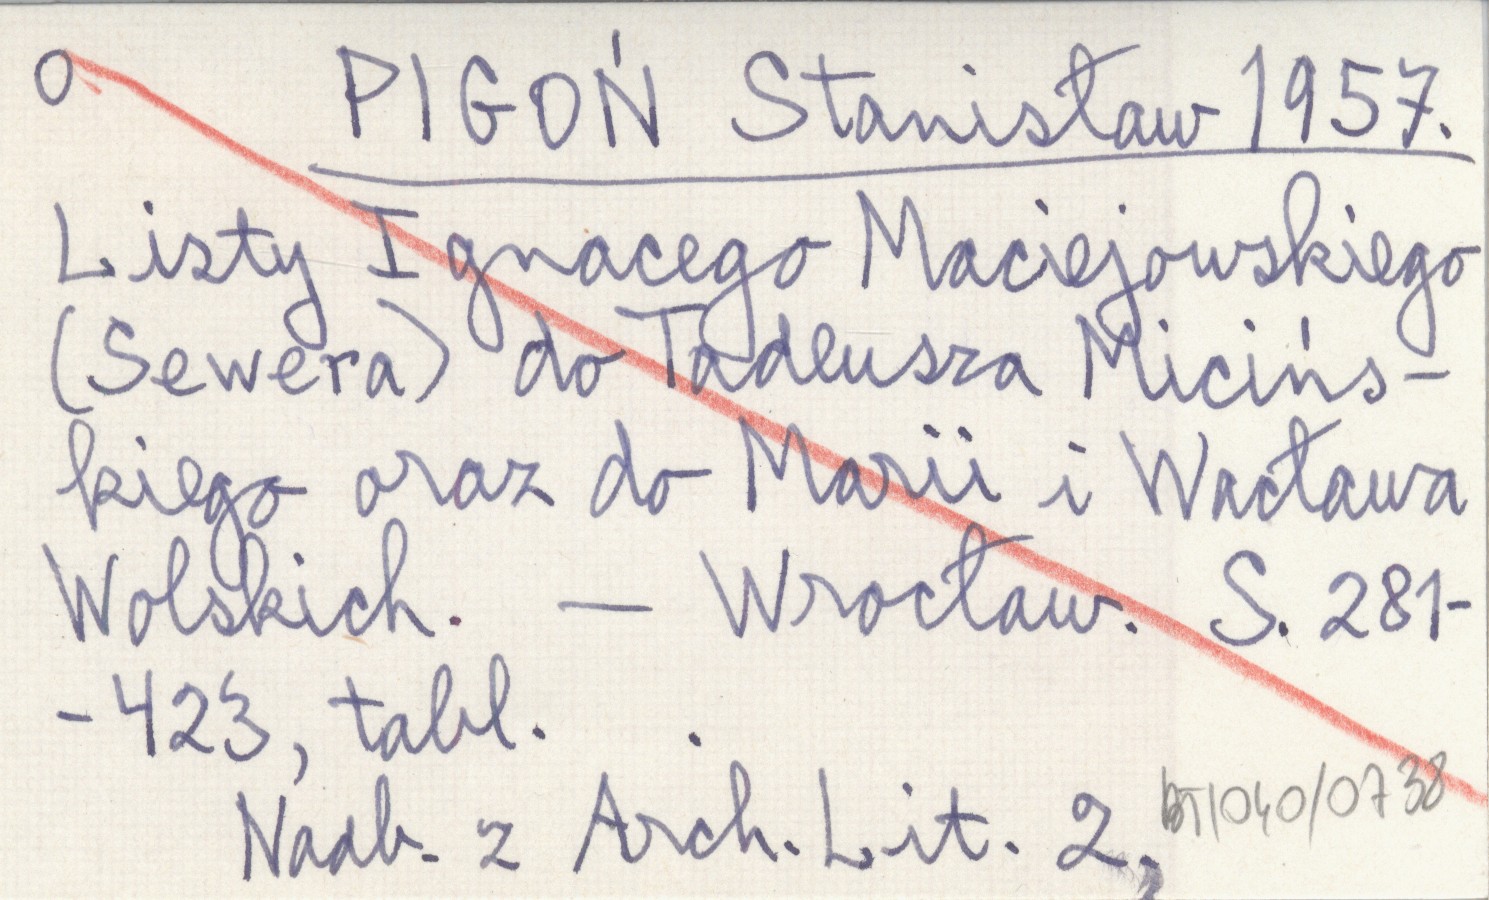 O PIGOŃ Stanisław 1957.
Listy Ignacego Maciejowskiego
(Sewera) do Tadeusza Micińs-
kiego oraz do Marii i Wacława
Wolskich. — Wrocław. S. 281-
-423, tabl.
Nadb. z Arch. Lit. 2,
BT/040/0738